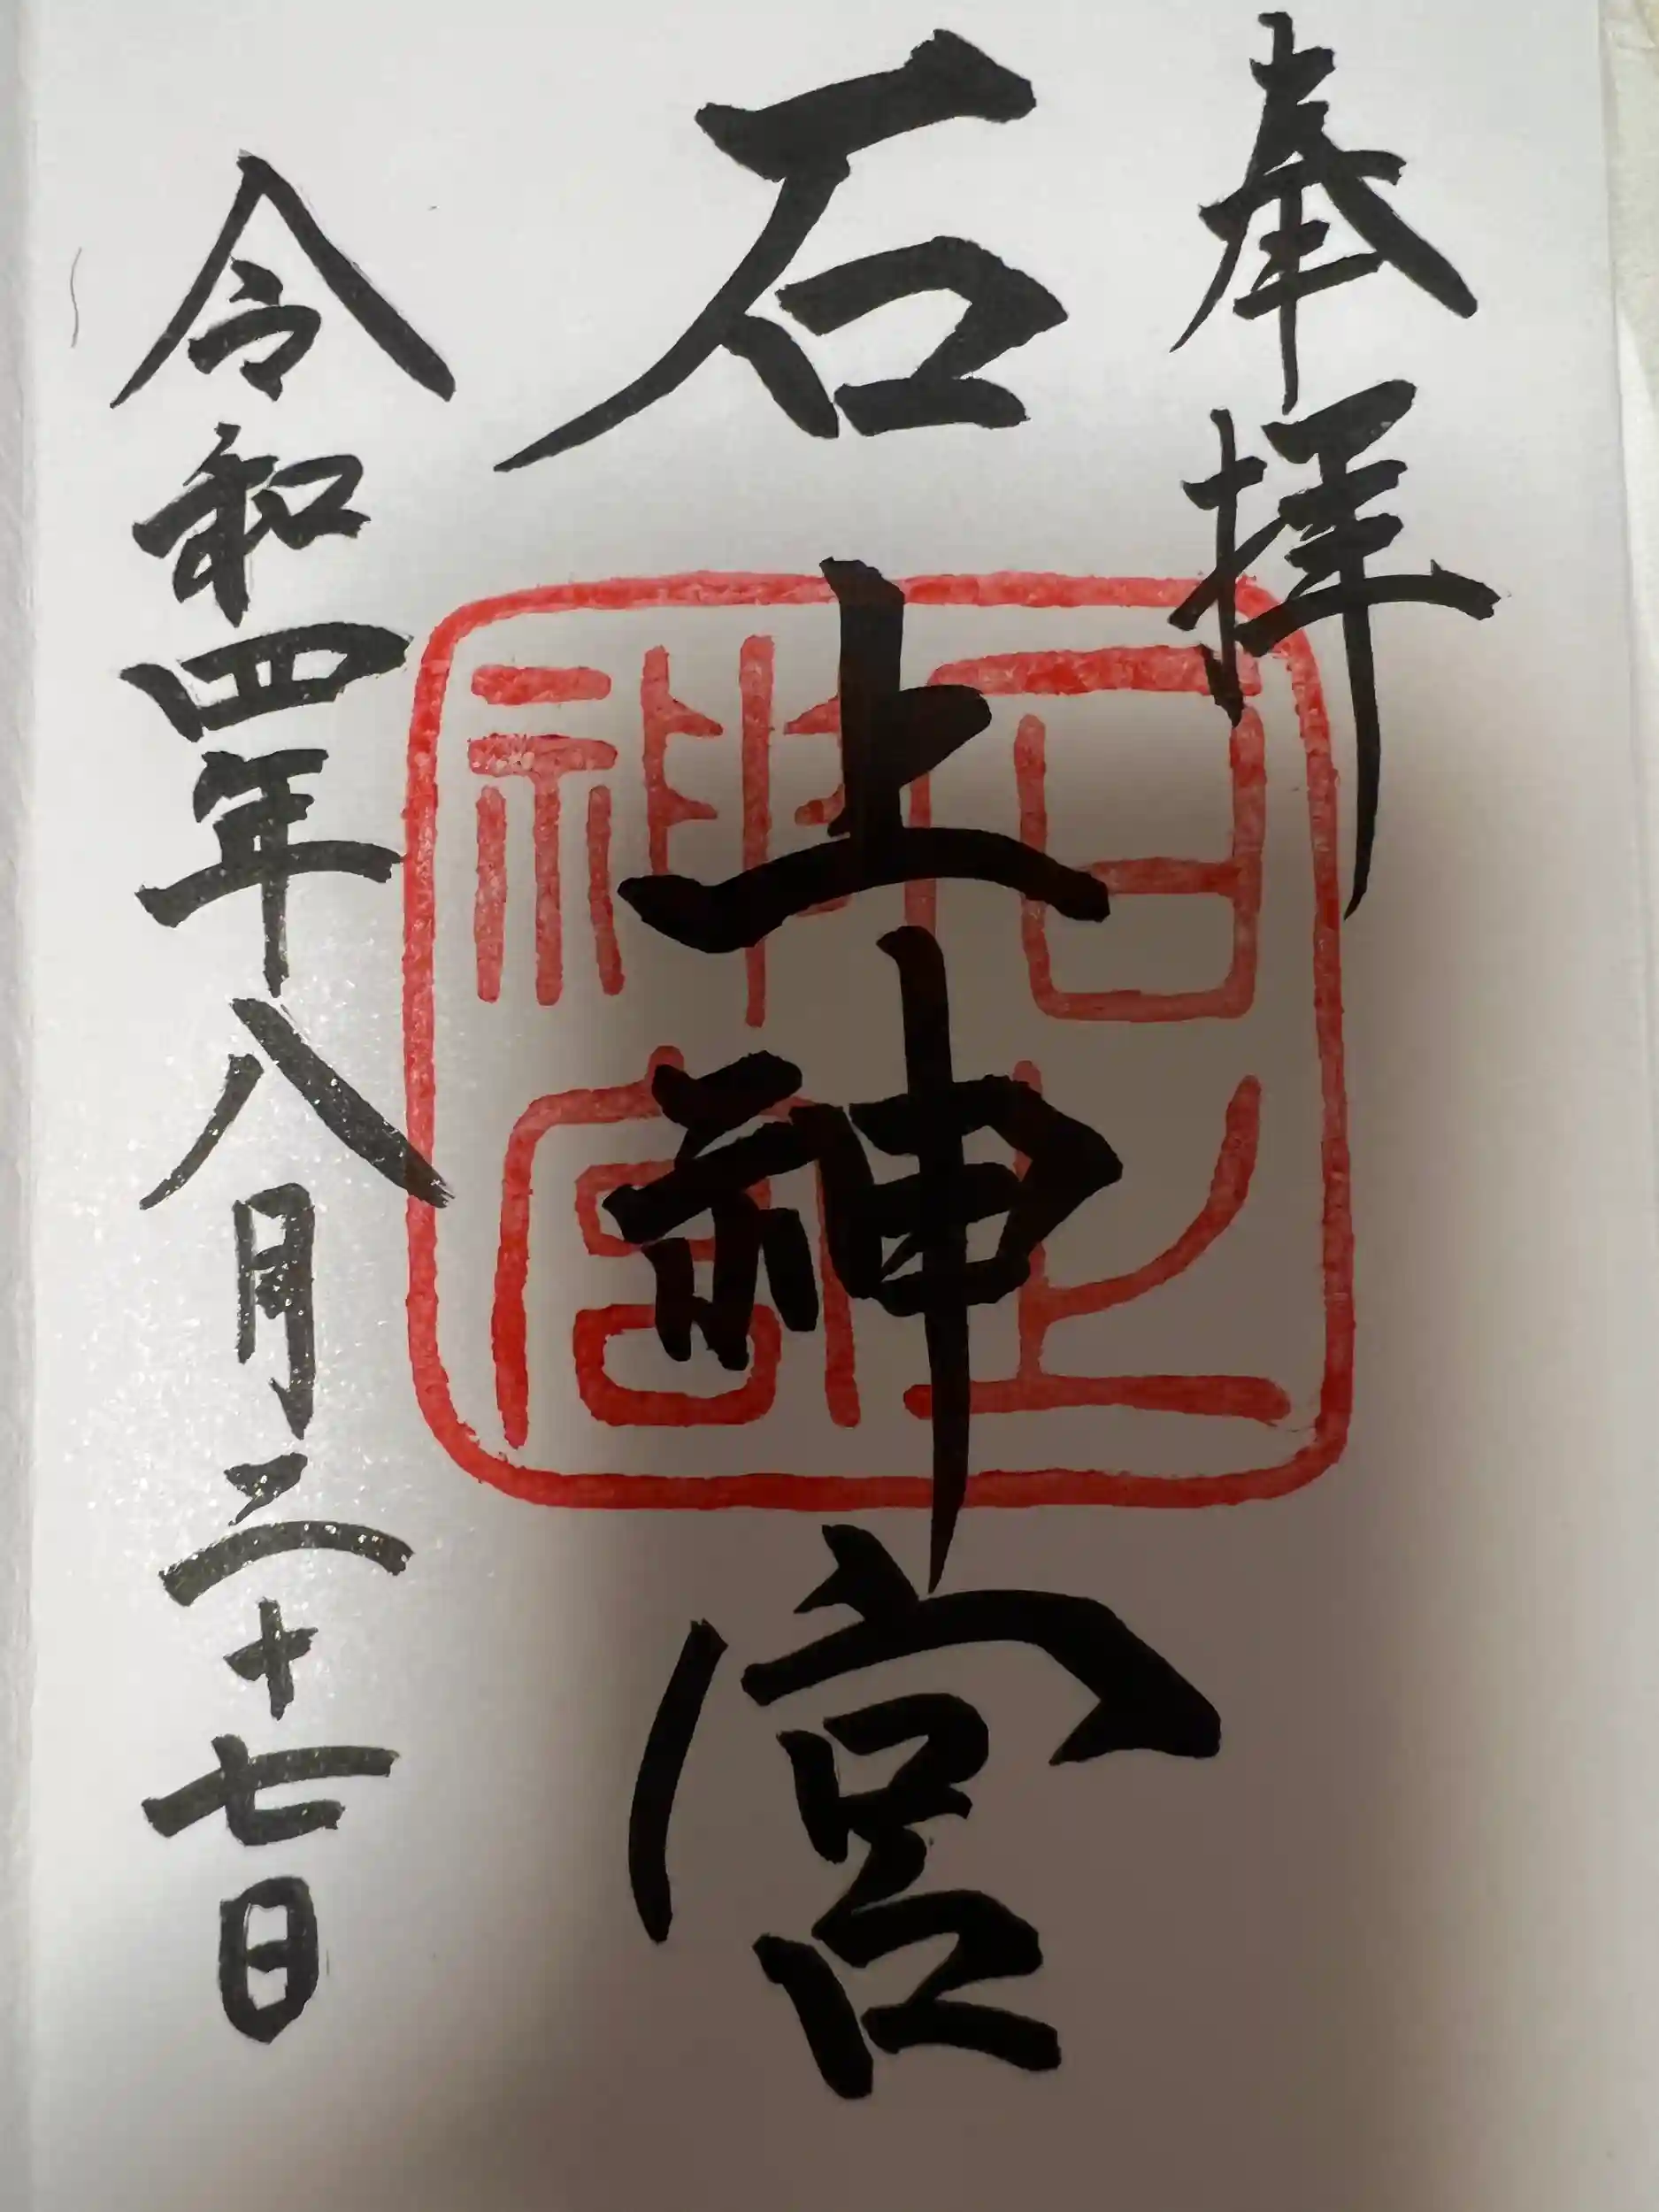 奉拝
石上神宮
石上神宮
令和四年八月二十七日